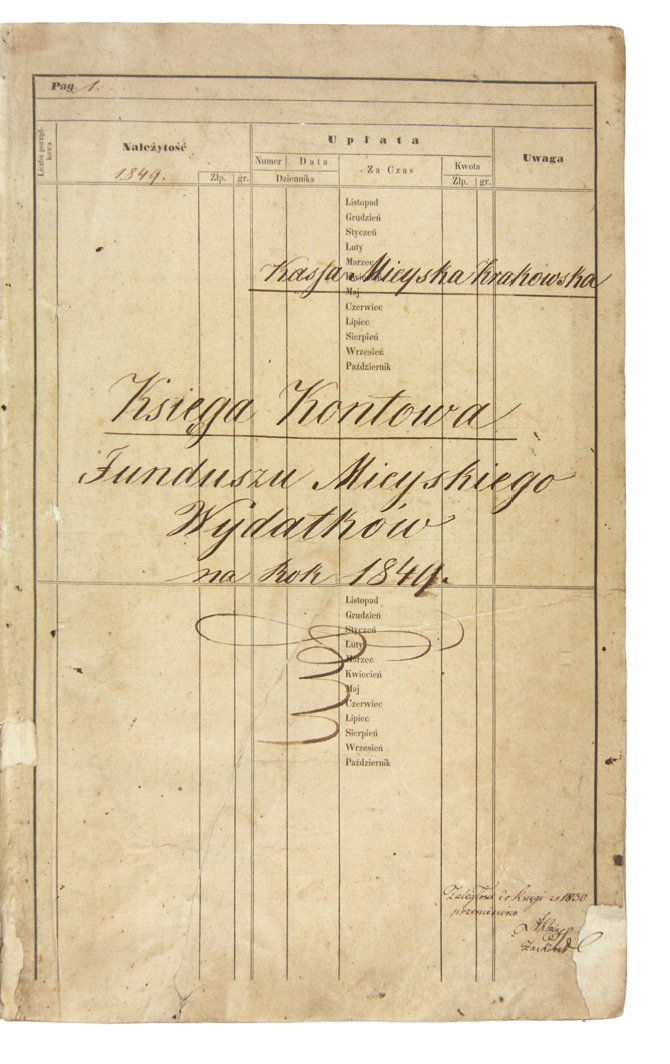 Pag. 1.
Liczba porząd-
kowa
Należytość
1849.
Złp. gr.
Upłata
Numer Data
Dziennika
Za Czas
Kwota
Złp. gr.
Uwaga
Listopad
Grudzień
Styczeń
Luty
Marzec
Kwiecień
Maj
Czerwiec
Lipiec
Sierpień
Wrzesień
Październik
Kassa Mieyska Krakowska
Księga Kontowa
Funduszu Mieyskiego
Wydatków
na Rok 1849.
Listopad
Grudzień
Styczeń
Luty
Marzec
Kwiecień
Maj
Czerwiec
Lipiec
Sierpień
Wrzesień
Październik
do Księgi 1850
przeniesiono